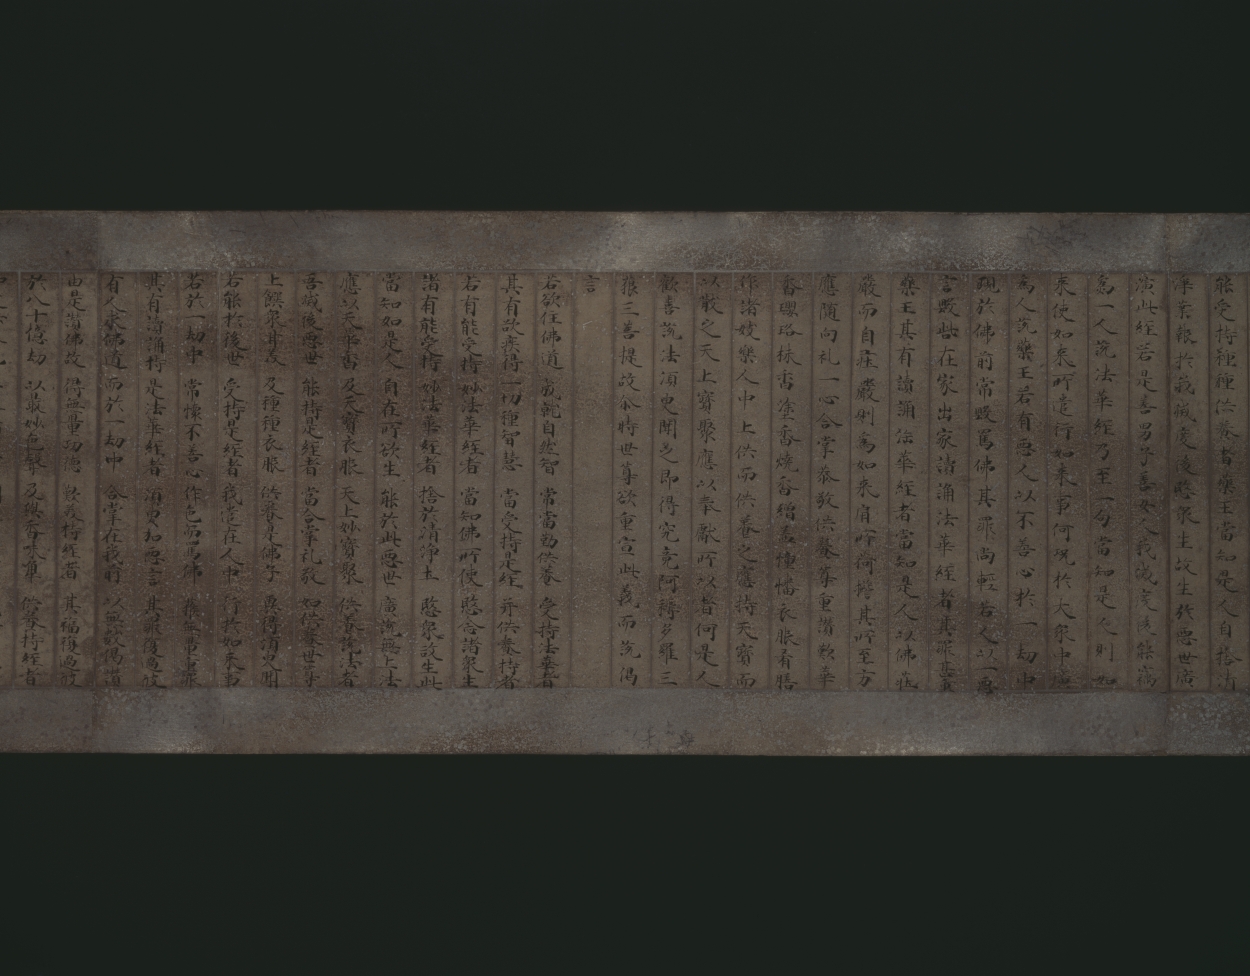 能受持種種供養者藥王當知是人自捨清
淨業報於我滅度後愍衆生故生於惡世廣
演此經若是善男子善女人我滅度後能竊
爲一人說法華經乃至一句當知是人則如
来使如来所遣行如来事何況於大衆中廣
爲人說藥王若有惡人以不善心於一劫中
現於佛前常毀罵佛其罪尚輕若人以一惡
言毀呰在家出家讀誦法華經者其罪甚重
藥王其有讀誦法華經者當知是人以佛莊
嚴而自莊嚴則爲如来肩所荷擔其所至方
應隨向礼一心合掌恭敬供養尊重讃歎華
香瓔珞抹香塗香燒香繒蓋幢幡衣服肴膳
作諸妓樂人中上供而供養之應持天寶而
以散之天上寶聚應以奉獻所以者何是人
歡喜說法須臾聞之即得究竟阿耨多羅三
藐三菩提故尒時世尊欲重宣此義而說偈
言
若欲住佛道 成就自然智 常當勤供養 受持法華者
其有欲疾得 一切種智慧 當受持是經 并供養持者
若有能受持 妙法華經者 當知佛所使 愍念諸衆生
諸有能受持 妙法華經者 捨於清淨土 愍衆故生此
當知如是人 自在所欲生 能於此惡世 廣說無上法
應以天華香 及天寶衣服 天上妙寶聚 供養說法者
吾滅後惡世 能持是經者 當合掌礼敬 如供養世尊
上饌衆甘美 及種種衣服 供養是佛子 冀得須臾聞
若能於後世 受持是經者 我遣在人中 行於如来事
若於一劫中 常懷不善心 作色而罵佛 獲無量重罪
其有讀誦持 是法華經者 須臾加惡言 其罪復過彼
有人求佛道 而於一劫中 合掌在我前 以無數偈讃
由是讃佛故 得無量功德 歎美持經者 其福復過彼
於八十億劫 以最妙色聲 及與香味觸 供養持經者